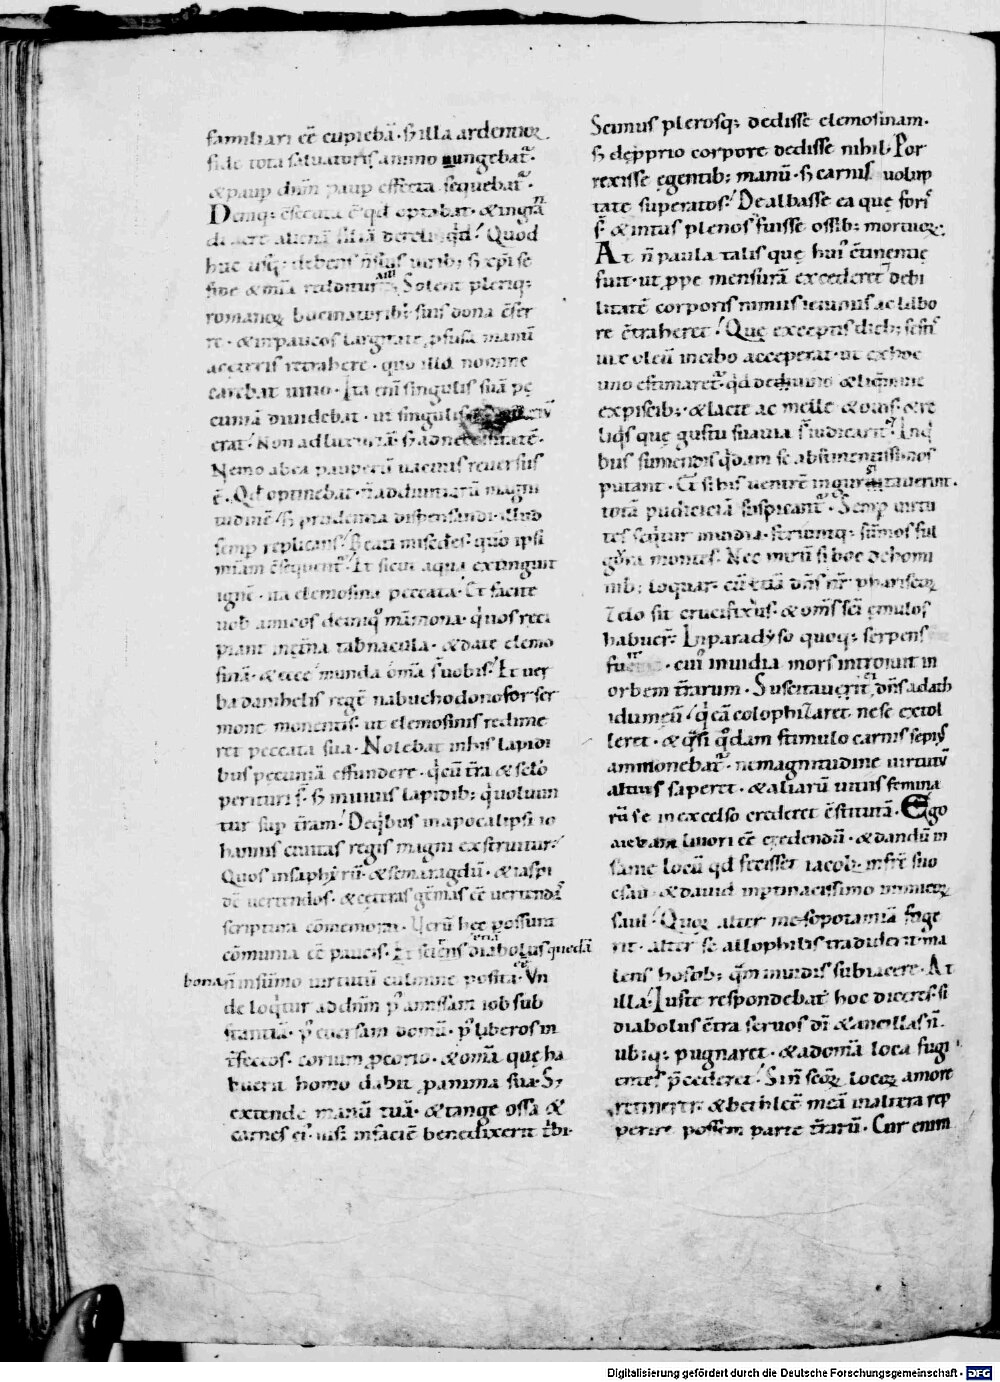 familiari eē cupiebā · sꝫ illa ardentioꝝ
fide tota saluatoris animo iungebat̃ ·
& paup dn̄m paup effecta sequebat̃ ·
Deniq; c̄secuta ē qd optabat · & in grā
di aere alienū filiā dereliq̇d ⸝ Quod
huc usq; debens
fide & mīa redditurā Solent pleriq;
romanoꝝ buccinatorib; suis dona c̄fer
re · & in paucos largitate ꝓfusa manū
a ceteris retrahere · quo illa nomine
carebat uitio · Ita enī singulis suā pe
cuniā diuidebat · ut singulis
erat ⸝ Non ad luxuriā sꝫ ad necessitatē ·
Nemo ab ea pauperū uacuus reuersus
ē · Qd optinebat · n̄ ad diuitiarū magni
tudinē ⸝ sꝫ prudentia dispensandi · illud
semp replicans ⸝ Beati misc̄des · qm̄ ipsi
mīam c̄sequent̃ ⸝ Et sicut aqua extinguit
ignē · ita elemosina peccata · Et facite
uob amicos de iniq̊ māmona · q̇ os reci
piant in et̄na tab̄nacula · & date elemo
sinā · & ecce munda ōma s̄ uobis ⸝ Et uer
ba danihelis regē nabuchodonosor ser
mone monentis · ut elemosinis redime
ret peccata sua · Nolebat in his lapidi
bus pecuniā effundere · q̇ cū t̄ra & sc̄lo
perituri s̄ · sꝫ in uiuis lapidib; q̇ uoluun
tur sup t̄ram ⸝ De q̇bus in apocalipsi io
hannis ciuitas regis magni exstruitur ⸝
Quos in saphyrū · & semaragdū · & iaspi
dē uertendos · & ceteras gēmas eē uertend
scriptura cōmemorat · Verū hec possunt
cōmunia eē paucis · Et sciens diabolus quedā
bona n̄ in sūmo uirtutū culmine posita · Vn
de loq̇tur ad dn̄m p̄ amissam iob sub
stantiā · p̄ euersam domū · p̄ liberos in
t̄fectos · corium ꝓ corio · & om̄a que ha
buerit homo dabit ꝓ anima sua · Sꝫ
extende manū tuā · & tange ossa &
carnes ei᾿ · nisi in faciē benedixerit tibi ·
Scimus plerosq; dedisse elemosinam ·
sꝫ de ꝓprio corpore dedisse nihil · Por
rexisse egentib; manū · sꝫ carnis uolup
tate superatos ⸝ Dealbasse ea que foris
s̄ · & intus plenos fuisse ossib; mortuoꝝ ·
At n̄ paula talis que hui᾿ c̄tinentie
fuit · ut ꝓpe mensurā excederet · & debi
litatē corporis nimiis ieiuniis ac labo
re c̄traheret ⸝ Que exceptis dieb; festis
uix oleū in cibo acceperat · ut ex hoc
uno estimaret̃ · qd de uino & liq̇mine
ex piscib; · & lacte ac melle & ouis · & re
liq̇s que gustu suauia s̄ iudicarit ⸝ In q̇
bus sumendis q̇dam se abstinentissimos
putant · Et si his uentrē ingurgitauerint ·
totā pudiciciā suspicant̃ · Semp uirtu
tes seq̇tur inuidia · feriuntq; sūmos ful
g̃a montes · Nec mirū si hoc de homi
nib; loquar · cū etiā dn̄s nr̄ phariseoꝝ
zelo sit crucifixus · & om̄s sc̄i emulos
habuer̄ · In paradyso quoq; serpens
fuerit · cui᾿ inuidia mors introiuit in
orbem t̄rarum · Suscitauerit dn̄s adath
idumeū ⸝ q̇ eā colophizaret · ne se extol
leret · & q̇si q̊dam stimulo carnis sepi᾿
ammonebat̃ · ne magnitudine uirtutū
altius saperet · & aliarū uitiis femina
rū se in excelso crederet c̄stitutā · Ego
aiebam liuori eē cedendū · & dandū in
sanie locū qd fecisset iacob in fr̄e suo
esau · & dauid in ptinacissimo inimicoꝝ
saul ⸝ Quoꝝ alter mesopotamiā fuge
rit · alter se allophilis tradiderit · ma
lens hostib; q̄m inuidis subiacere · At
illa · Iuste respondebat hoc diceres · si
diabolus c̄tra seruos dī & ancillas n̄
ubiq; pugnaret · & ad om̄a loca fugi
entes p̄cederet ⸝ Si n̄ sc̄oꝝ locoꝝ amore
retinerer · & bethleē meā in altera rep
perire possem parte t̄rarū · Cur enim
Digitalisierung gefördert durch die Deutsche Forschungsgemeinschaft - DFG